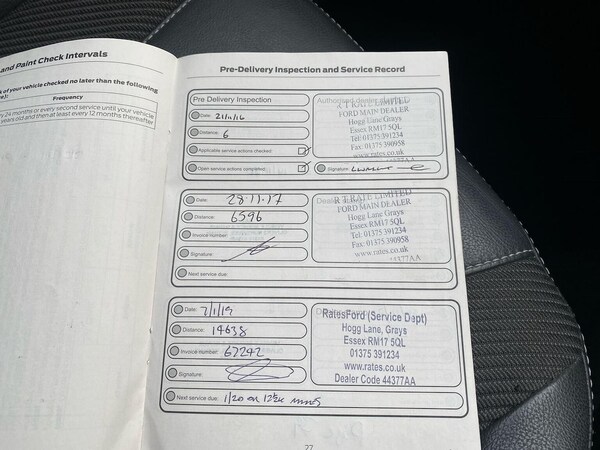 and Paint Check Intervals
k of your vehicle checked no later than the following
Frequency
y 24 months or every second service until your vehicle
years old and then at least every 12 months thereafter
Pre-Delivery Inspection and Service Record
Pre Delivery Inspection
Date:
Distance: 6
Applicable service actions checked:
Open service actions completed:
R T RATE LIMITED
FORD MAIN DEALER
Hogg Lane Grays
Essex RM17 5QL
Tel: 01375 391234
Fax: 01375 390958
www.rates.co.uk
44377AA
Signature:
Date: 28.11.17
Distance: 6596
Invoice number:
Signature:
Next service due:
R T RATE LIMITED
FORD MAIN DEALER
Hogg Lane Grays
Essex RM17 5QL
Tel: 01375 391234
Fax: 01375 390958
www.rates.co.uk
44377AA
Date: 7/1/19
Distance: 14638
Invoice number: 67242
Signature:
RatesFord (Service Dept)
Hogg Lane, Grays
Essex RM17 5QL
01375 391234
www.rates.co.uk
Dealer Code 44377AA
Next service due: 1/20 or 12½k miles
77